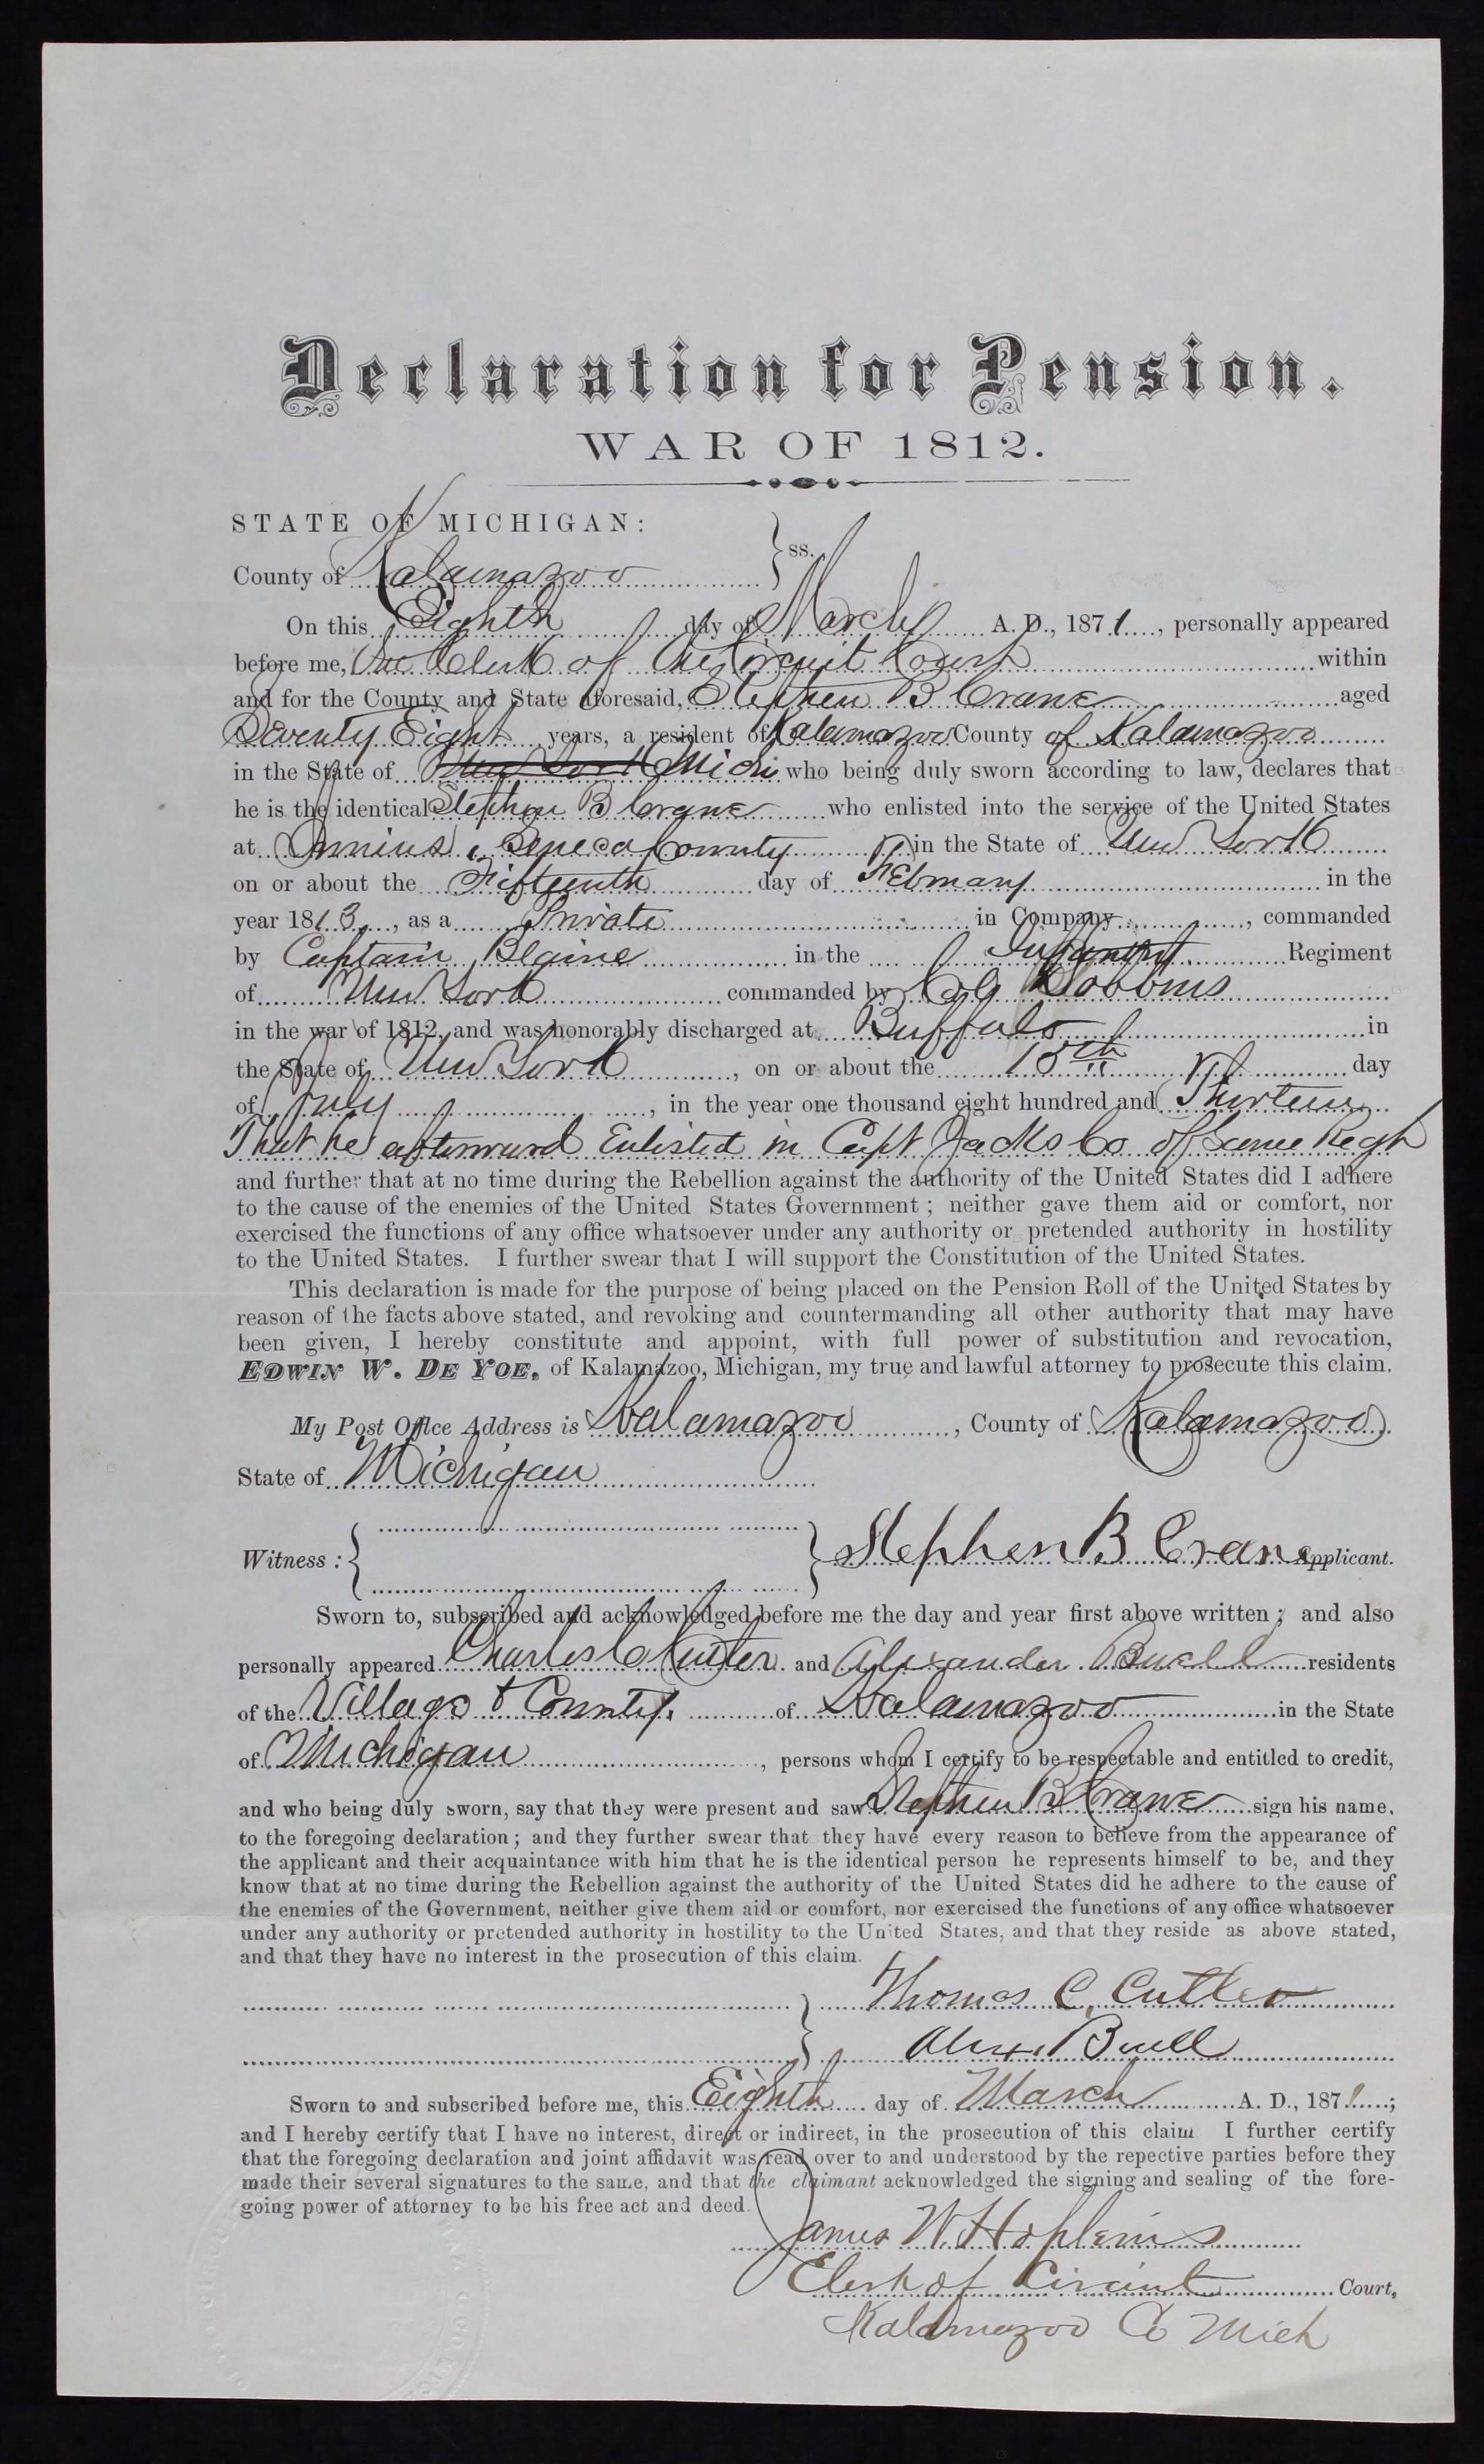 Declaration for Pension.
WAR OF 1812.
STATE OF MICHIGAN:
ss.
County of Kalamazoo
On this Eighth day of March A. D., 1871, personally appeared
before me, the Clerk of the Circuit Court within
and for the County and State aforesaid, Stephen B Crane aged
Seventy Eight years, a resident of Kalamazoo County of Kalamazoo
in the State of New York Mich who being duly sworn according to law, declares that
he is the identical Stephen B Crane who enlisted into the service of the United States
at Junius, Seneca County in the State of New York
on or about the Fifteenth day of February in the
year 1813, as a Private in Company, commanded
by Captain Blaine in the Infantry Regiment
of New York commanded by Col Dobbins
in the war of 1812, and was honorably discharged at Buffalo in
the State of New York, on or about the 15th day
of July, in the year one thousand eight hundred and Thirteen
That he afterward Enlisted in Capt Jacks Co of same Regt
and further that at no time during the Rebellion against the authority of the United States did I adhere
to the cause of the enemies of the United States Government; neither gave them aid or comfort, nor
exercised the functions of any office whatsoever under any authority or pretended authority in hostility
to the United States. I further swear that I will support the Constitution of the United States.
This declaration is made for the purpose of being placed on the Pension Roll of the United States by
reason of the facts above stated, and revoking and countermanding all other authority that may have
been given, I hereby constitute and appoint, with full power of substitution and revocation,
EDWIN W. DE YOE, of Kalamazoo, Michigan, my true and lawful attorney to prosecute this claim.
My Post Office Address is Kalamazoo, County of Kalamazoo
State of Michigan
Witness: Stephen B Crane Applicant.
Sworn to, subscribed and acknowledged before me the day and year first above written; and also
personally appeared Charles C Cutler and Alexander Buell residents
of the Village & County of Kalamazoo in the State
of Michigan, persons whom I certify to be respectable and entitled to credit,
and who being duly sworn, say that they were present and saw Stephen B Crane sign his name,
to the foregoing declaration; and they further swear that they have every reason to believe from the appearance of
the applicant and their acquaintance with him that he is the identical person he represents himself to be, and they
know that at no time during the Rebellion against the authority of the United States did he adhere to the cause of
the enemies of the Government, neither give them aid or comfort, nor exercised the functions of any office whatsoever
under any authority or pretended authority in hostility to the United States, and that they reside as above stated,
and that they have no interest in the prosecution of this claim.
Thomas C. Cutler
Alex. Buell
Sworn to and subscribed before me, this Eighth day of March A. D., 1871;
and I hereby certify that I have no interest, direct or indirect, in the prosecution of this claim I further certify
that the foregoing declaration and joint affidavit was read over to and understood by the repective parties before they
made their several signatures to the same, and that the claimant acknowledged the signing and sealing of the fore-
going power of attorney to be his free act and deed.
James W. Hopkins
Clerk of Circuit Court,
Kalamazoo Co Mich